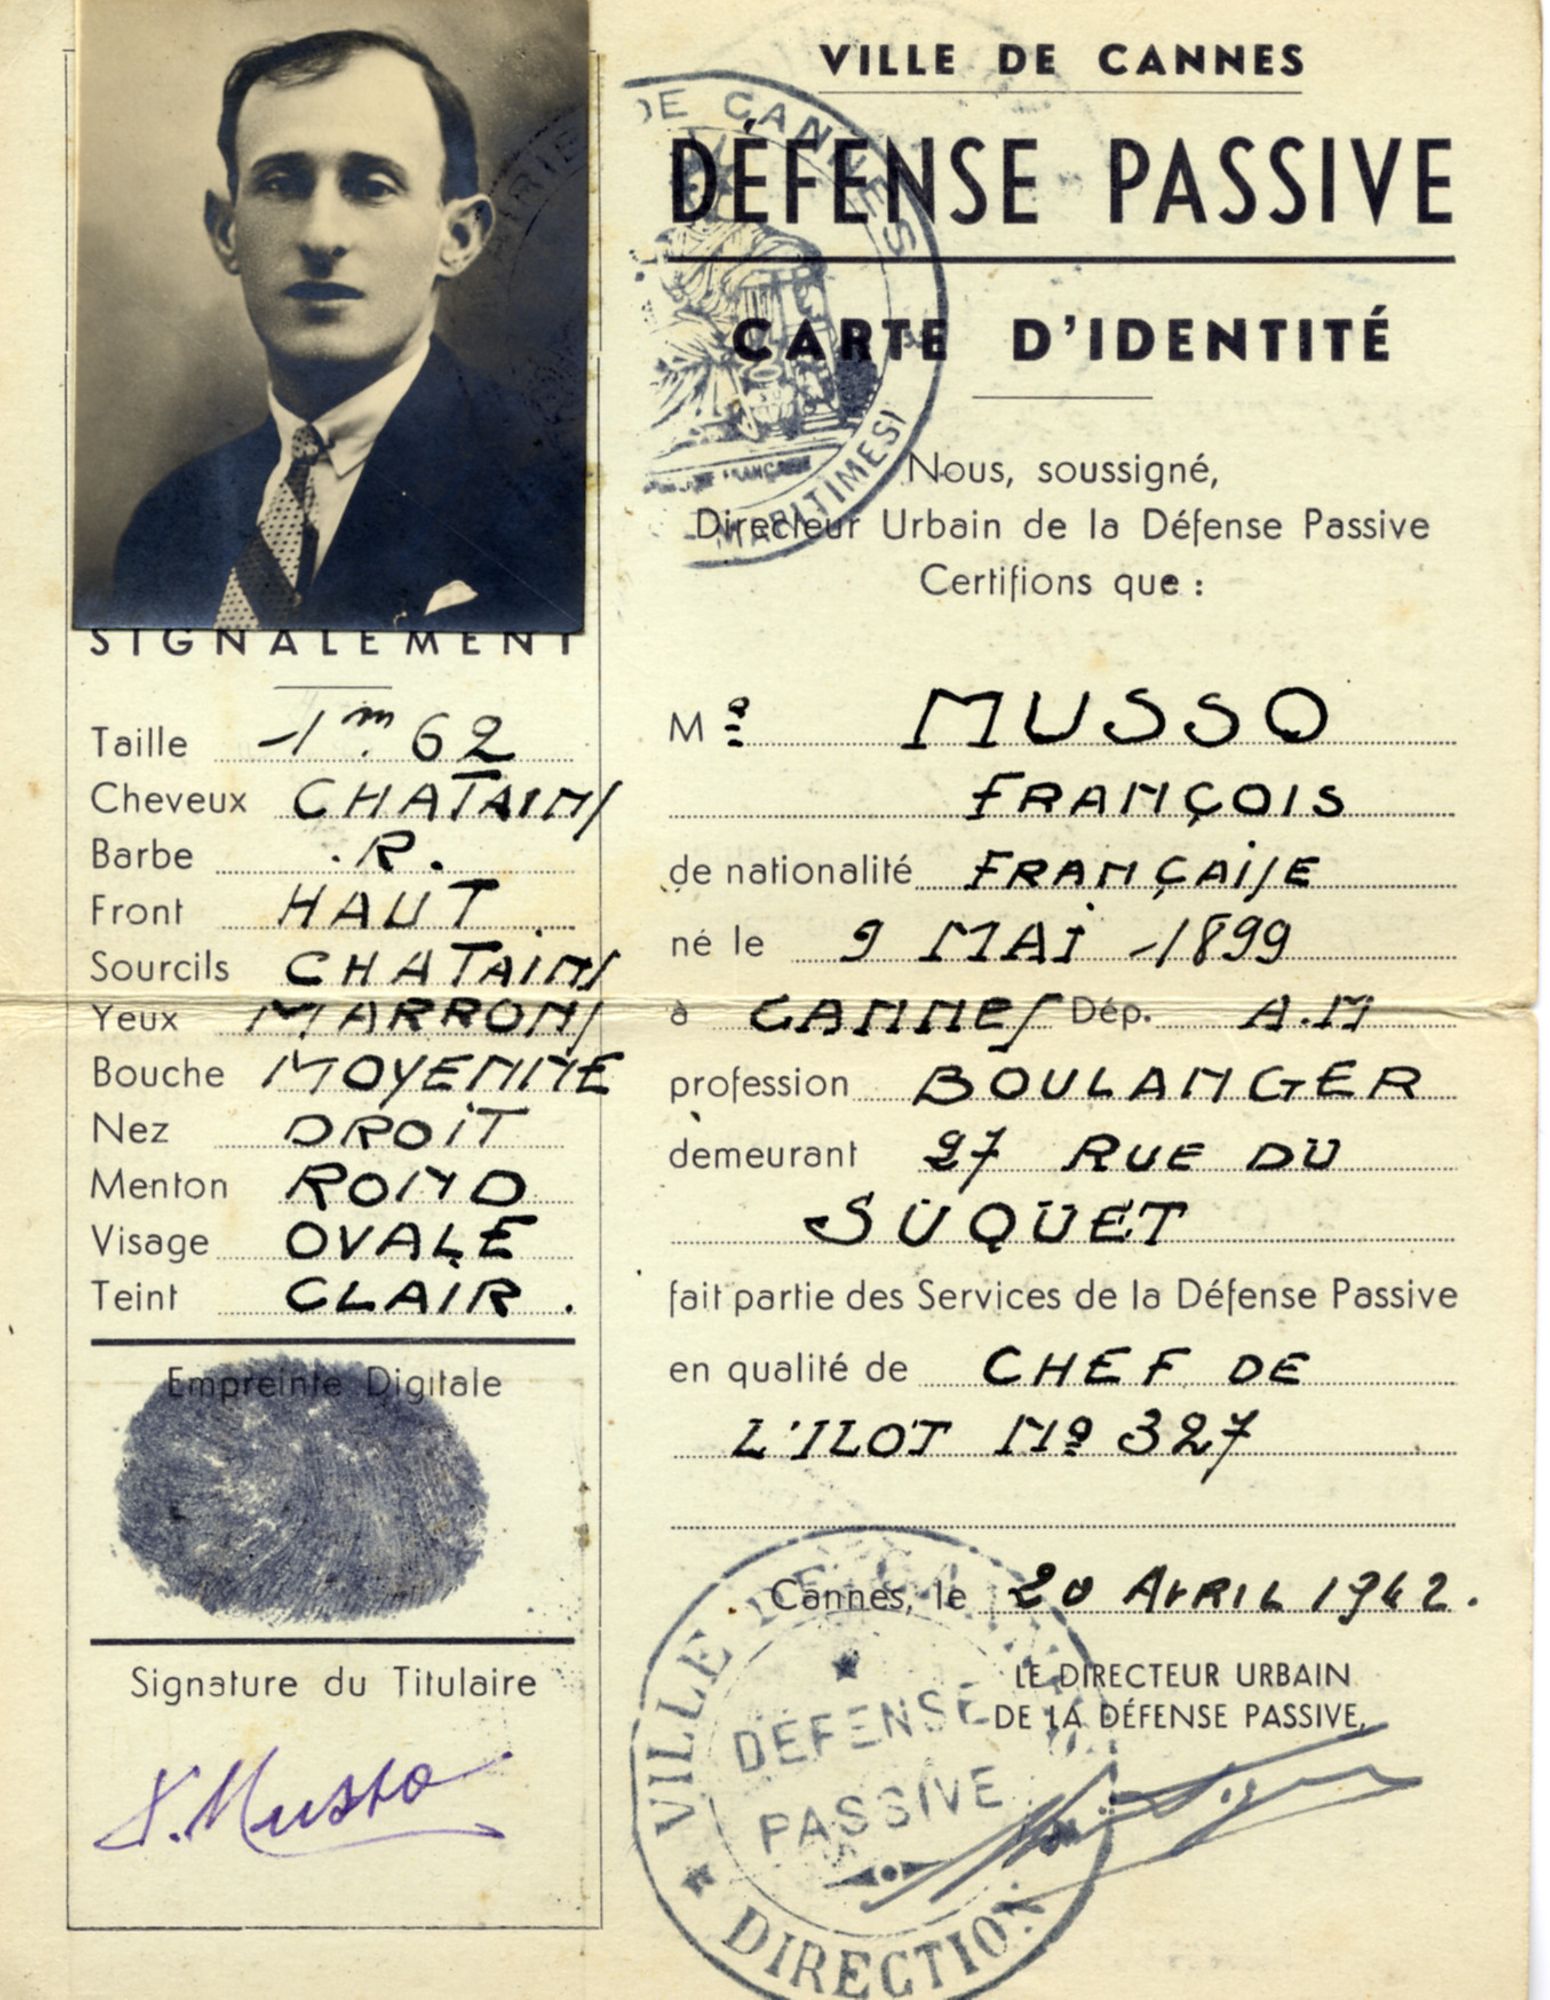 VILLE DE CANNES
DÉFENSE PASSIVE
CARTE D'IDENTITÉ
Nous, soussigné,
Directeur Urbain de la Défense Passive
Certifions que :
Mr MUSSO
FRANÇOIS
de nationalité FRANÇAISE
né le 9 MAI 1899
à CANNES Dép. A.M
profession BOULANGER
demeurant 27 RUE DU
SUQUET
fait partie des Services de la Défense Passive
en qualité de CHEF DE
L'ILOT Nº 327
Cannes, le 20 AVRIL 1942.
LE DIRECTEUR URBAIN
DE LA DÉFENSE PASSIVE,
SIGNALEMENT
Taille 1m.62
Cheveux CHATAINS
Barbe .R.
Front HAUT.
Sourcils CHATAINS
Yeux MARRONS
Bouche MOYENNE
Nez DROIT
Menton ROND
Visage OVALE
Teint CLAIR.
Empreinte Digitale
Signature du Titulaire
F. Musso
MAIRIE DE CANNES
MARITIMES)
VILLE DE
DÉFENSE
PASSIVE
DIRECTION